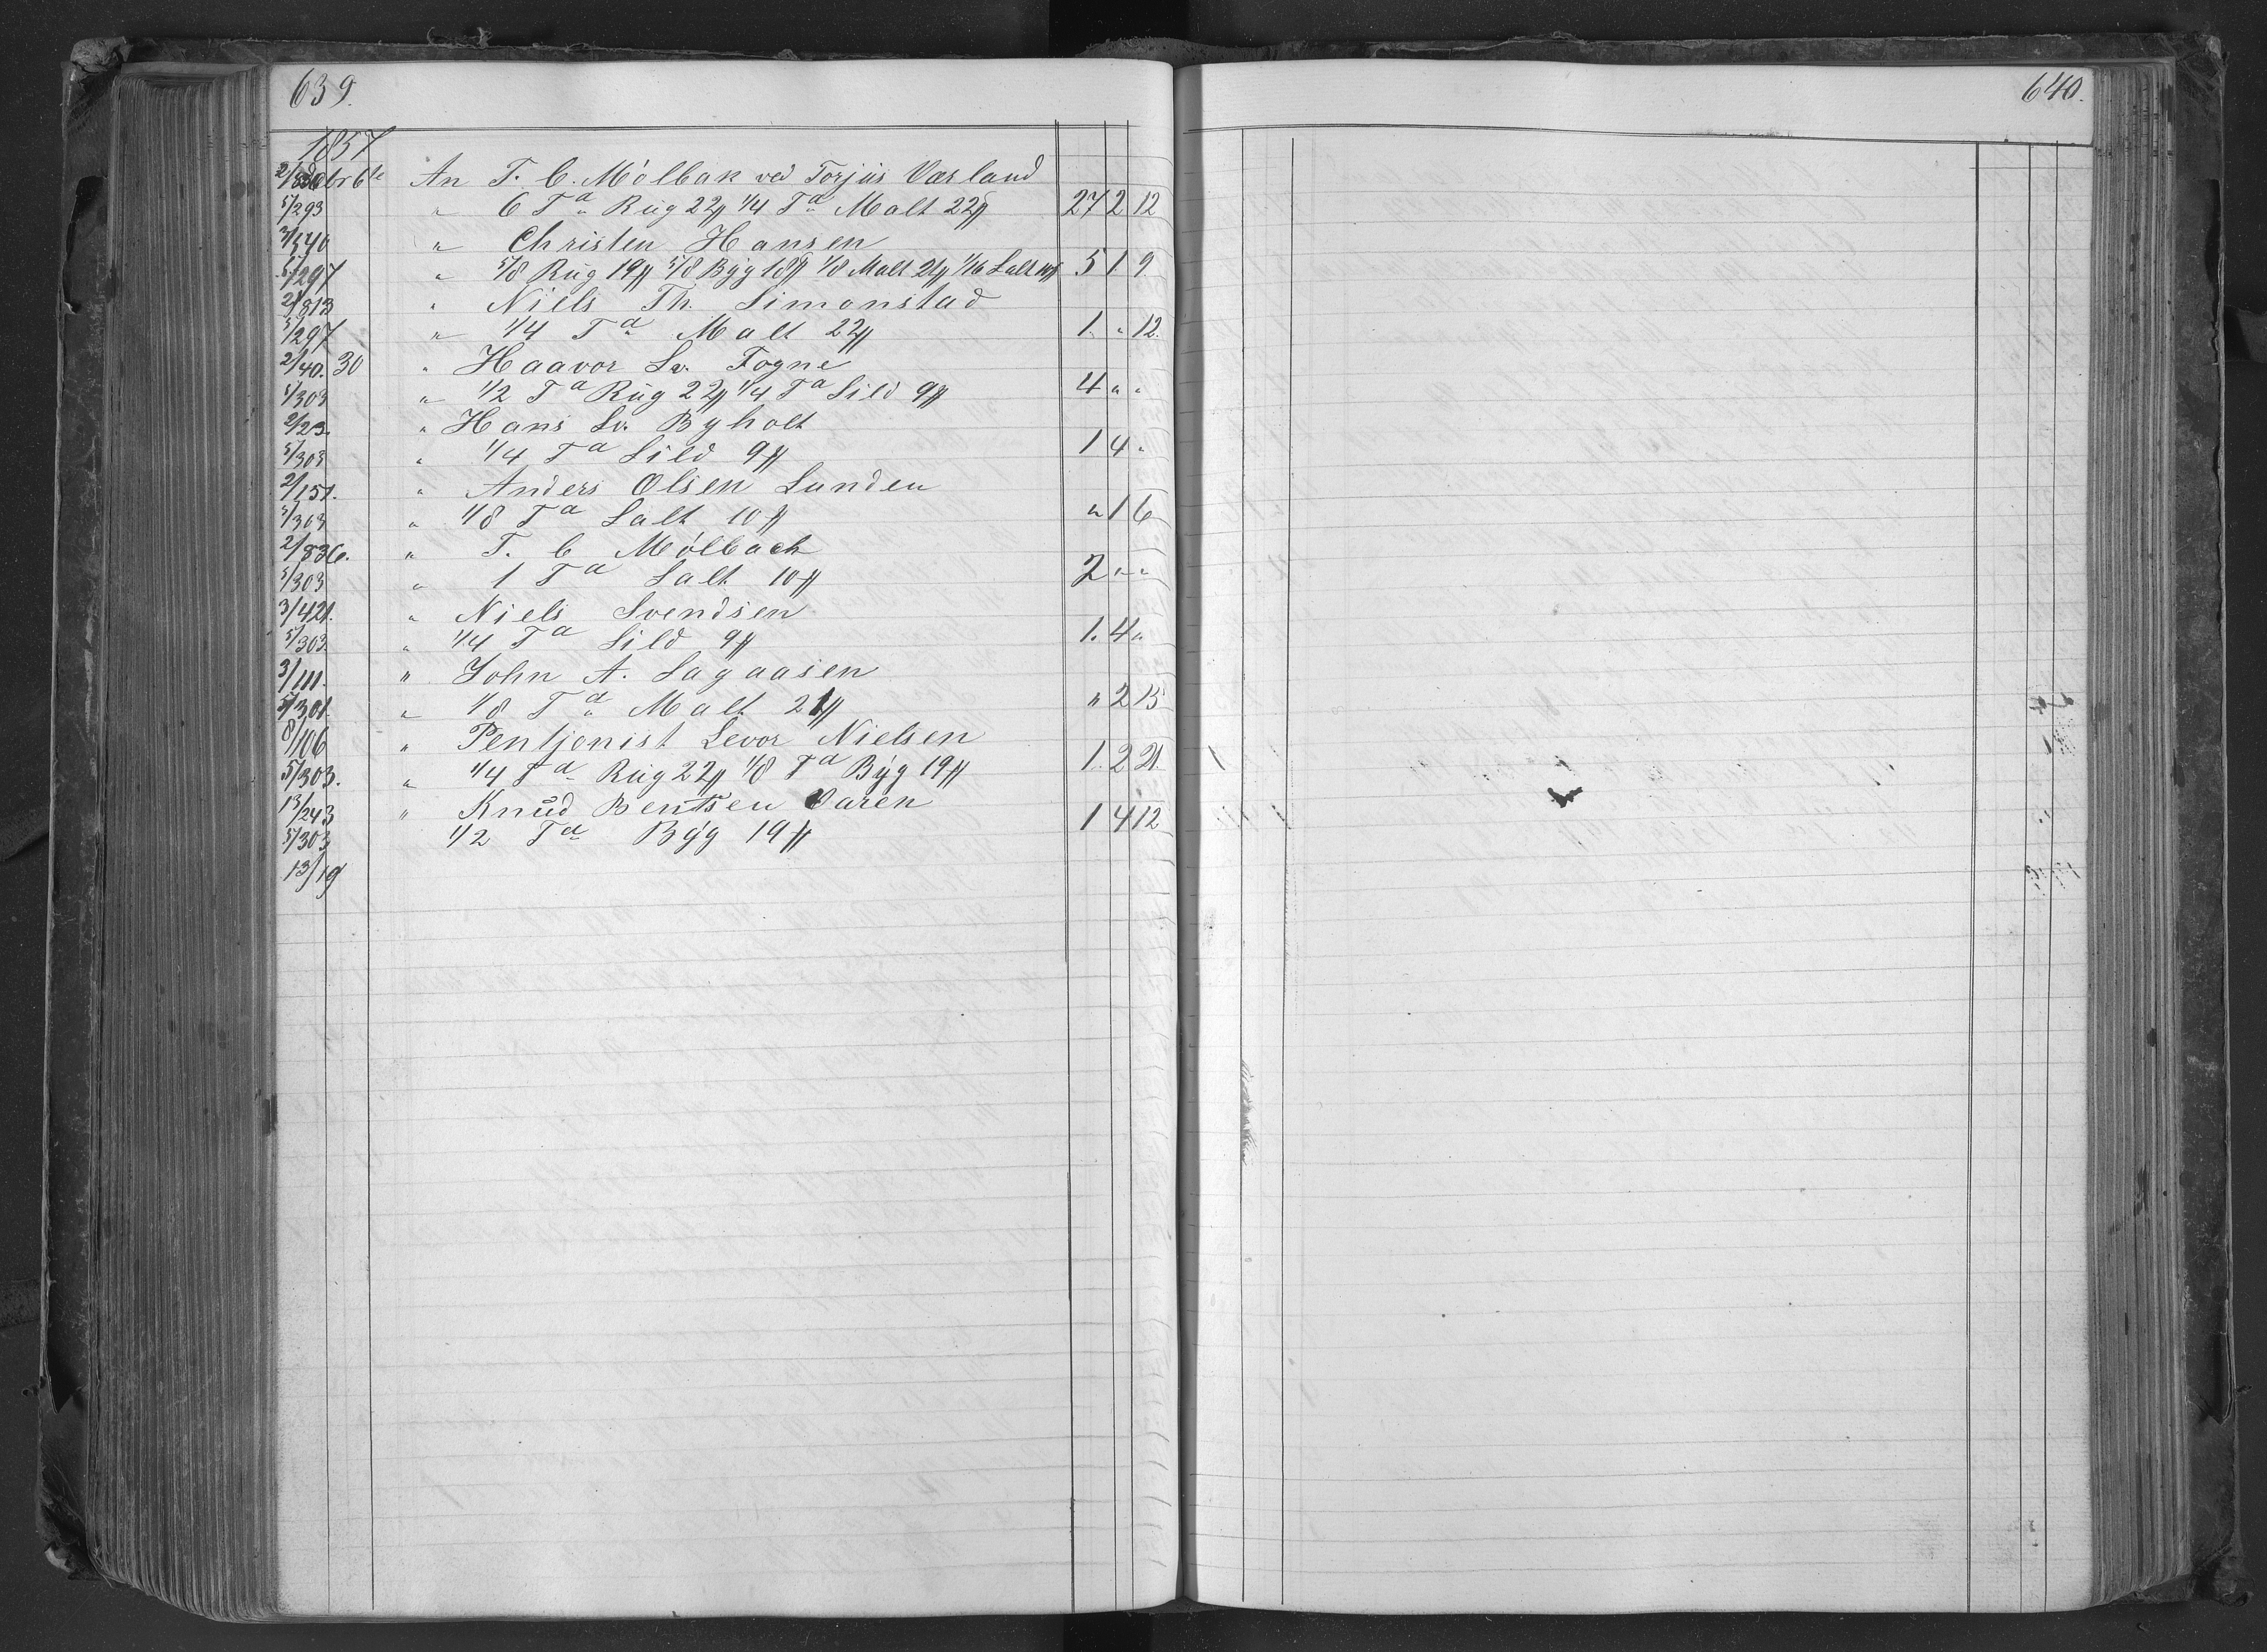 639.
640.
1857
2/836 Octbr 6te An T. C. Mölbak ved Torjus Værland
5/293 " 6 Td Rug 22# 1/4 Td Malt 22# 27 2 12
3/540 " Christen Hansen
5/297 " 5/8 Rug 19# 5/8 Byg 18# 1/8 Malt 21# 1/16 Salt 10# 5 1 9
2/813 " Niels Th. Simonstad
5/297 " 1/4 Td Malt 22# 1. " 12.
2/40. 30 " Haavor Sv. Fogne
5/303 " 1/2 Td Rug 22# 1/4 Td Sild 9# 4 " "
2/23. " Hans Sv. Byholt
5/303 " 1/4 Td Sild 9# 1 4 "
2/151. " Anders Olsen Lunden
5/303 " 1/8 Td Salt 10# " 1 6
2/836. " T. C Mölbach
5/303 " 1 Td Salt 10# 2 " "
3/421. " Niels Svendsen
5/303. " 1/4 Td Sild 9# 1. 4 "
3/111. " John A. Sagaasen
5/301. " 1/8 Td Malt 21# " 2 15
8/106 " Pentjonist Levor Nielsen
5/303. " 1/4 Td Rug 22# 1/8 Td Byg 19# 1. 2 21.
13/243 " Knud Bentsen Varen
5/303 1/2 Td Byg 19# 1 4 12
13/19